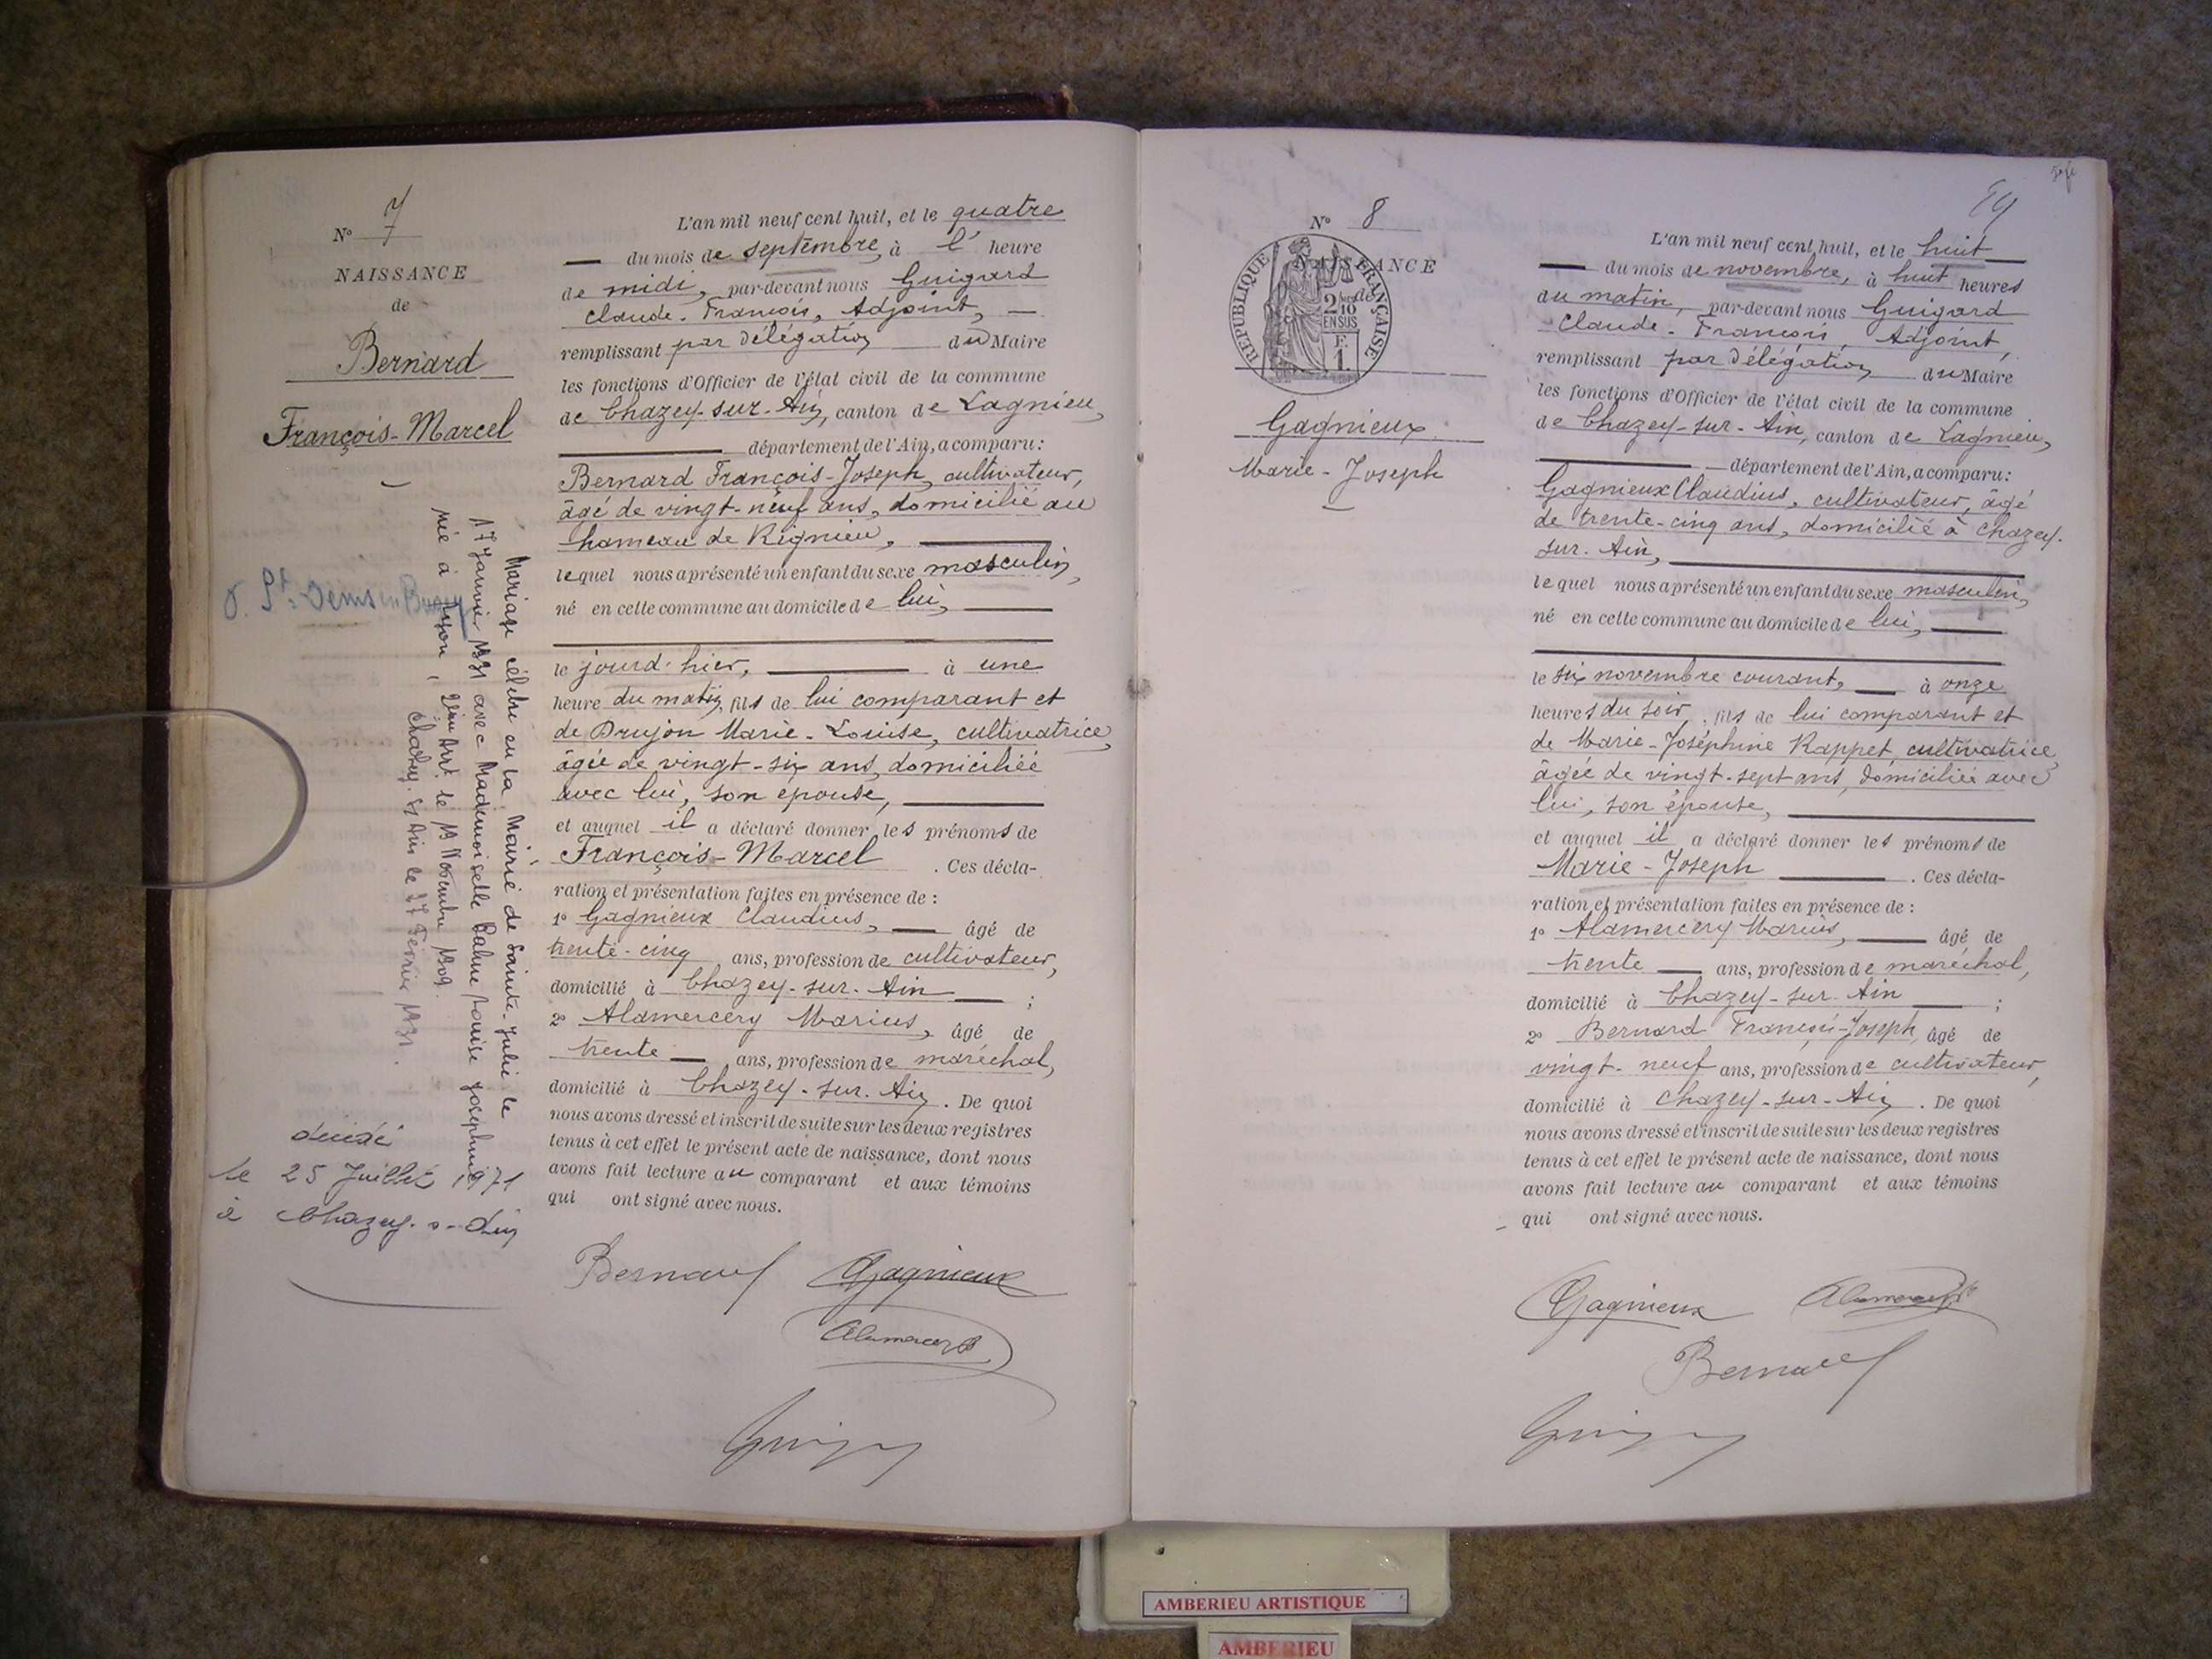 N° 7
NAISSANCE
de
Bernard
François-Marcel
Mariage célébré en la Mairie de Sainte-Julie le
17 Janvier 1931 avec Mademoiselle Louise Joséphine
née à Lyon, 2ème Arrt le 19 Novembre 1909.
Chazey-s/-Ain le 27 Février 1931.
décédé
le 25 Juillet 1971
à Chazey-s-Ain
L'an mil neuf cent huit, et le quatre
du mois de septembre, à l' heure
de midi, par-devant nous Guigard
Claude-François, Adjoint,
remplissant par délégation du Maire
les fonctions d'Officier de l'état civil de la commune
de Chazey-sur-Ain, canton de Lagnieu,
département de l'Ain, a comparu:
Bernard François-Joseph, cultivateur,
âgé de vingt-neuf ans, domicilié au
hameau de Rignieu,
lequel nous a présenté un enfant du sexe masculin,
né en cette commune au domicile de lui,
le jourd'hier, à une
heure du matin, fils de lui comparant et
de Drujon Marie-Louise, cultivatrice,
âgée de vingt-six ans, domiciliée
avec lui, son épouse,
et auquel il a déclaré donner les prénoms de
François-Marcel. Ces décla-
ration et présentation faites en présence de :
1° Gagnieux Claudius, âgé de
trente-cinq ans, profession de cultivateur,
domicilié à Chazey-sur-Ain ;
2° Alamercery Marius, âgé de
trente ans, profession de maréchal,
domicilié à Chazey-sur-Ain. De quoi
nous avons dressé et inscrit de suite sur les deux registres
tenus à cet effet le présent acte de naissance, dont nous
avons fait lecture au comparant et aux témoins
qui ont signé avec nous.
Bernard Gagnieux
Alamercery
N° 8
NAISSANCE
de
RÉPUBLIQUE FRANÇAISE
2/10
EN SUS
F.
1.
Gagnieux
Marie-Joseph
L'an mil neuf cent huit, et le huit
du mois de novembre, à huit heures
du matin, par-devant nous Guigard
Claude-François, Adjoint,
remplissant par délégation du Maire
les fonctions d'Officier de l'état civil de la commune
de Chazey-sur-Ain, canton de Lagnieu,
département de l'Ain, a comparu:
Gagnieux Claudius, cultivateur, âgé
de trente-cinq ans, domicilié à Chazey-
sur-Ain,
lequel nous a présenté un enfant du sexe masculin,
né en cette commune au domicile de lui,
le six novembre courant, à onze
heures du soir, fils de lui comparant et
de Marie-Joséphine Rappet, cultivatrice
âgée de vingt-sept ans, domiciliée avec
lui, son épouse,
et auquel il a déclaré donner les prénoms de
Marie-Joseph. Ces décla-
ration et présentation faites en présence de :
1° Alamercery Marius, âgé de
trente ans, profession de maréchal,
domicilié à Chazey-sur-Ain ;
2° Bernard François-Joseph, âgé de
vingt-neuf ans, profession de cultivateur,
domicilié à Chazey-sur-Ain. De quoi
nous avons dressé et inscrit de suite sur les deux registres
tenus à cet effet le présent acte de naissance, dont nous
avons fait lecture au comparant et aux témoins
qui ont signé avec nous.
Gagnieux Alamercery
Bernard
AMBERIEU ARTISTIQUE
AMBERIEU